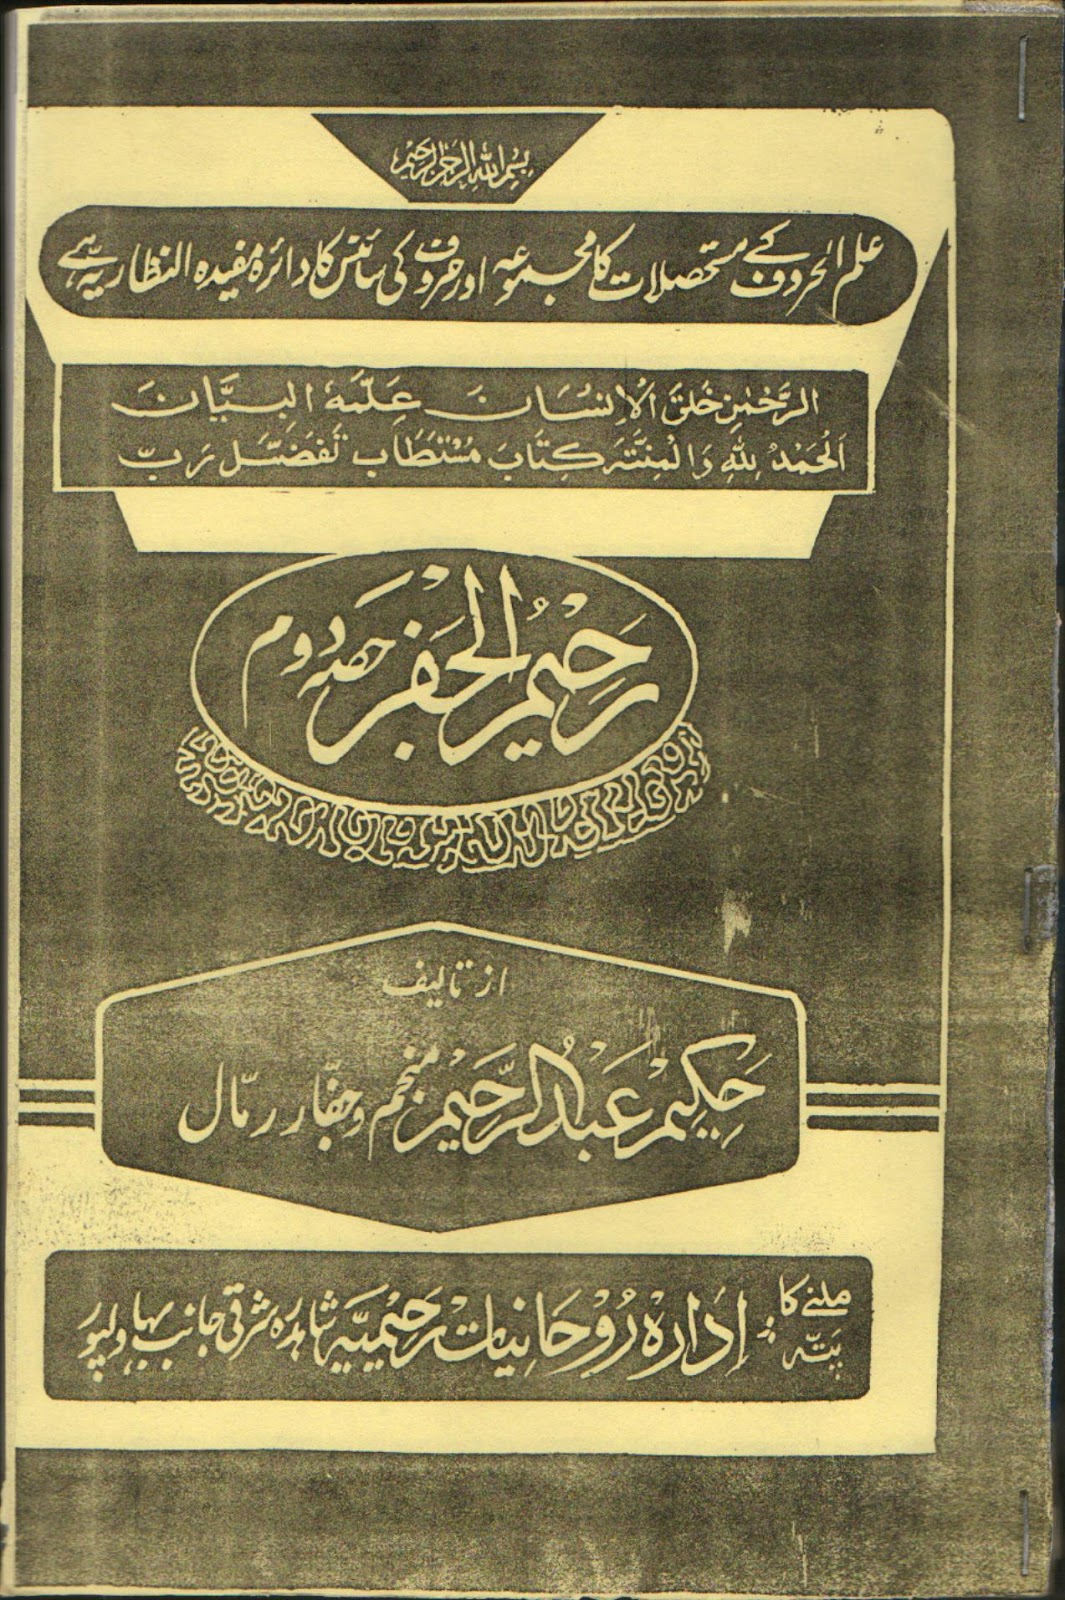 بسم الله الرحمن الرحيم
علم الحروف کے مستحصلات کا مجموعہ اور حروف کی سائنس کا دائرہ مفیدہ النظاریہ ہے
الرَّحْمٰنِ خَلَقَ الْاِنْسَانَ عَلَّمَهُ الْبَيَّانَ
اَلْحَمْدُ لِلّٰهِ وَالْمِنَّتَہ كِتَابَ مُسْتَطَاب تَفَضَّل رَبّ
رَحِیْمُ الْجَفَر حصہ دوم
از تالیف
حَکِیْم عَبْدُ الرَّحِیْم منجم و جفّار رمّال
ملنے کا پتہ: اِدَارہ رُوْحَانِیَات رَحِیْمِیَّہ شاہدرہ شرقی جانب بہاولپور